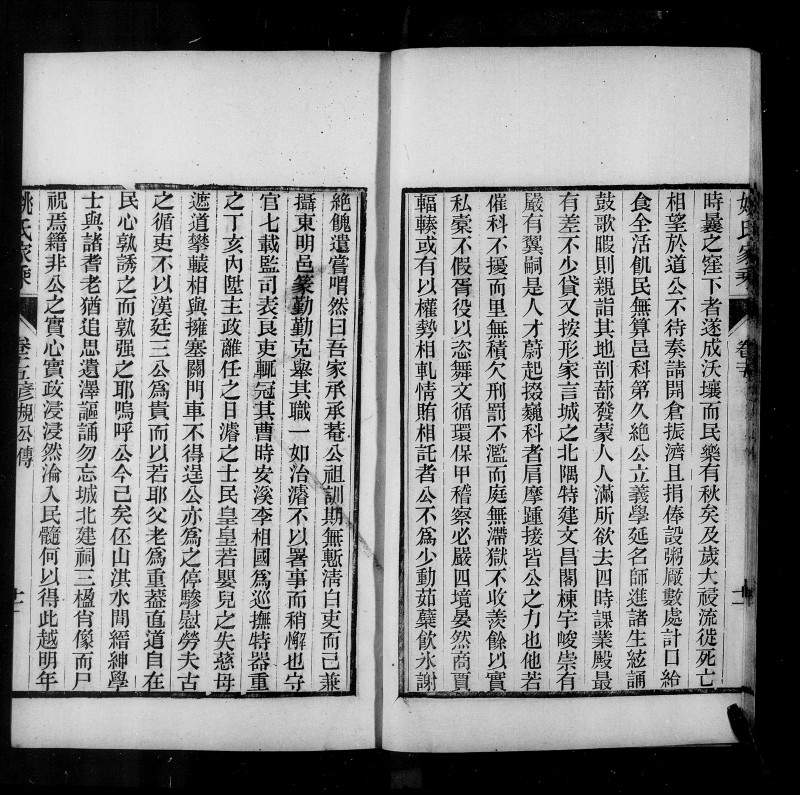 姚氏家乘
時曩之窪下者遂成沃壤而民樂有秋矣及歲大祲流徙死亡
相望於道公不待奏請開倉振濟且捐俸設粥厰數處計口給
食全活飢民無算邑科第久絶公立義學延名師進諸生絃誦
鼓歌暇則親詣其地剖蔀發蒙人人滿所欲去四時課業殿最
有差不少貸又按形家言城之北隅特建文昌閣棟宇峻崇有
嚴有翼嗣是人才蔚起掇巍科者肩摩踵接皆公之力也他若
催科不擾而里無積欠刑罰不濫而庭無滯獄不收羨餘以實
私橐不假胥役以恣舞文循環保甲稽察必嚴四境晏然商賈
輻輳或有以權勢相軋情賄相託者公不爲少動茹蘗飲氷謝
絶餽遺嘗喟然曰吾家承承菴公祖訓期無慙淸白吏而已兼
攝東明邑篆勤勤克舉其職一如治濬不以署事而稍懈也守
官七載監司表良吏輒冠其曹時安溪李相國爲巡撫特器重
之丁亥內陞主政離任之日濬之士民皇皇若嬰兒之失慈母
遮道攀轅相與擁塞關門車不得逞公亦爲之停驂慰勞夫古
之循吏不以漢廷三公爲貴而以若耶父老爲重葢直道自在
民心孰誘之而孰强之耶嗚呼公今已矣伾山淇水間縉紳學
士與諸耆老猶追思遺澤謳誦勿忘城北建祠三楹肖像而尸
祝焉籍非公之實心實政浸浸然淪入民髓何以得此越明年
姚氏家乘 卷十五彦槻公傳 十二